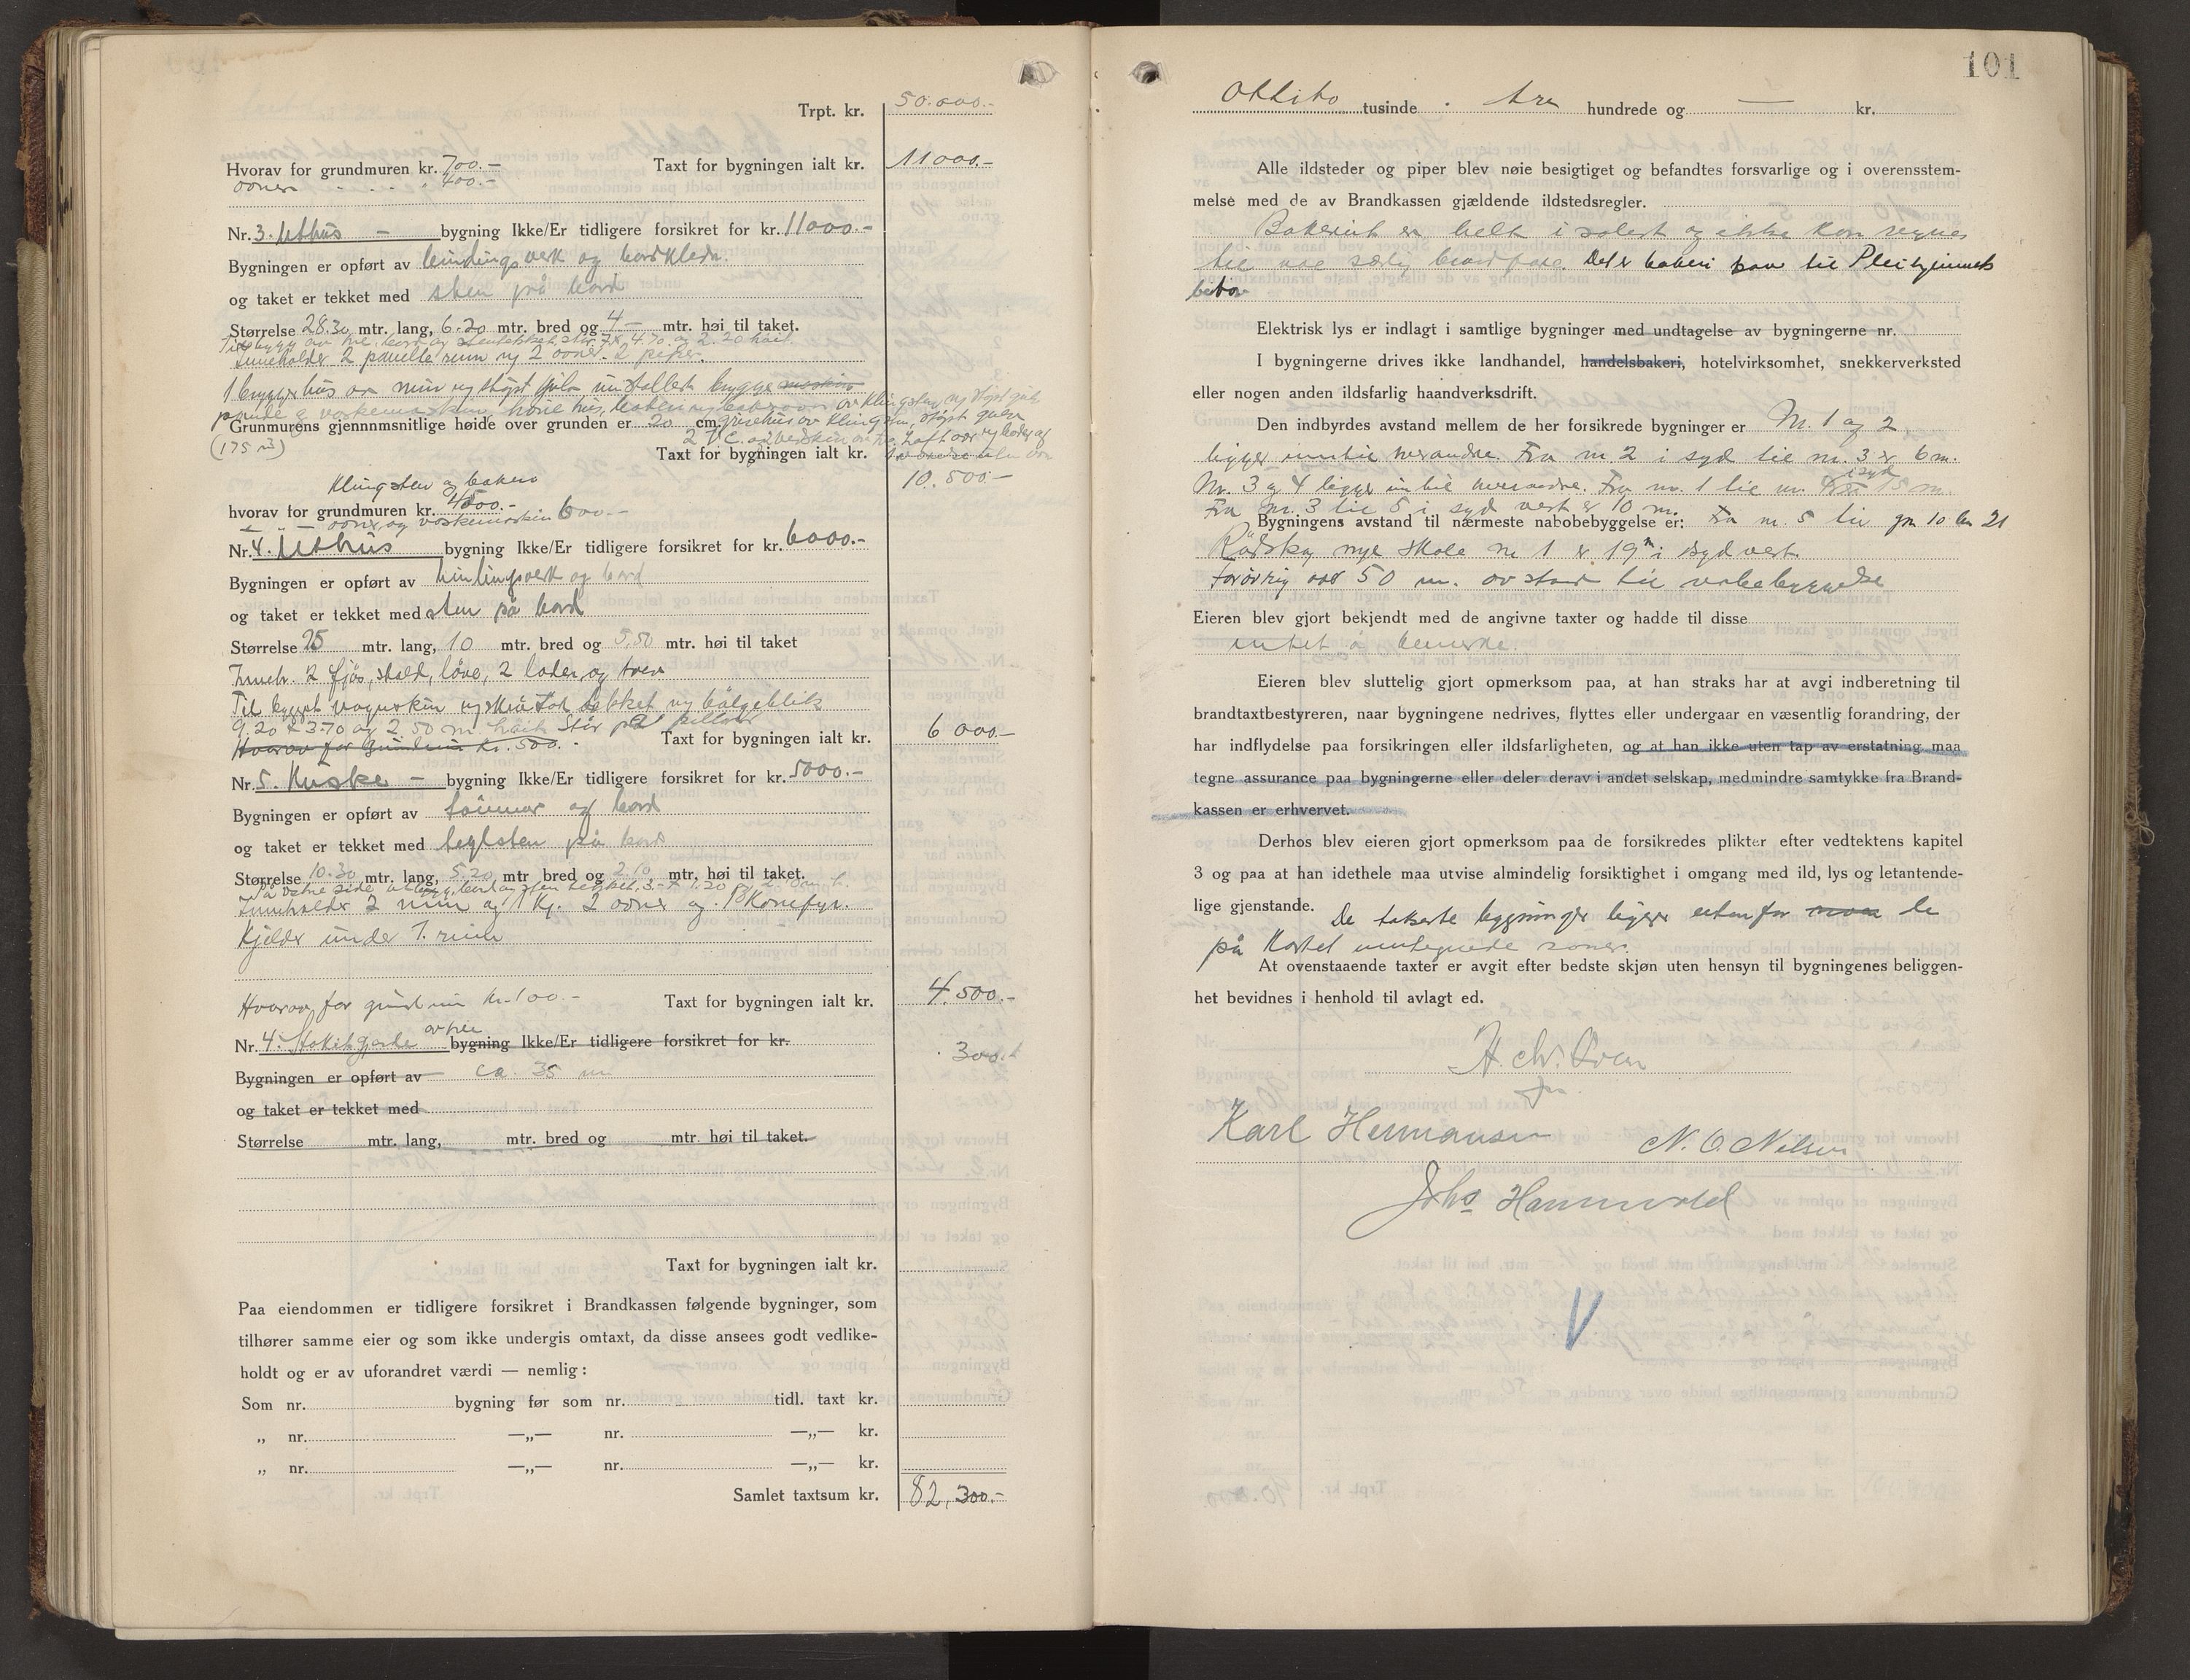 Trpt. kr. 50.000.-
Hvorav for grundmuren kr. 700.- Taxt for bygningen ialt kr. 11000.-
ovner . . . . 400.-
Nr. 3. Uthus - bygning Ikke/Er tidligere forsikret for kr. 11000.-
Bygningen er opført av bindingsverk og bordkledn.
og taket er tekket med sten på bord
Størrelse 28.30 mtr. lang, 6.20 mtr. bred og 4 - mtr. høi til taket.
Inneholder 2 panelte rum og 2 ovner. 2 piper.
1 bryggerhus av mur og støpt gulv installert brygge
panne og vaskemaskin, høns hus,
Grunmurens gjennmsnitlige høide over grunden er 20 cm.
(175 m3) Taxt for bygningen ialt kr.
10.500.-
Klingsten og bakero
hvorav for grundmuren kr. 4500.-
ovner og vaskemaskin 600.-
Nr. 4. Uthus bygning Ikke/Er tidligere forsikret for kr. 6000.-
Bygningen er opført av bindingsverk og bord
og taket er tekket med sten på bord
Størrelse 25 mtr. lang, 10 mtr. bred og 5.50 mtr. høi til taket
Inneh. 2 fjøs, stald, løve, 2 lader, og trev
Til bygget vognskur og skur tak tekket og bølgeblik
9.20 x 3.70 og 2.50 m høit Står på pillarer
Hvorav for Grundmur Kr. 500.- Taxt for bygningen ialt kr. 6 000.-
Nr. 5. Kuske - bygning Ikke/Er tidligere forsikret for kr. 5000.-
Bygningen er opført av tømmer og bord
og taket er tekket med teglsten på bord
Størrelse 10.30 mtr. lang, 5.20 mtr bred og 2.60 mtr, høi til taket.
Inneholder 2 rum og 1 kj. 2 ovner og 1 Komfyr.
Kjelder under 1. rum
Hvorav for grundmur Kr. 100.- Taxt for bygningen ialt kr. 4.500.-
Nr. 4. Stakitgjerde av tre bygning Ikke/Er tidligere forsikret for kr. 300.-
Bygningen er opført av ca. 35 m
og taket er tekket med
Størrelse mtr. lang, mtr. bred og mtr. høi til taket.
Taxt for bygningen ialt kr.
Paa eiendommen er tidligere forsikret i Brandkassen følgende bygninger, som
tilhører samme eier og som ikke undergis omtaxt, da disse ansees godt vedlike-
holdt og er av uforandret værdi — nemlig:
Som nr. bygning før som nr. tidl. taxt kr.
„ nr. —„— nr. —„— kr.
„ nr. —„— nr. —„— kr.
Samlet taxtsum kr. 82,300.-
101
Ottito tusinde . tre hundrede og — kr.
Alle ildsteder og piper blev nøie besigtiget og befandtes forsvarlige og i overensstem-
melse med de av Brandkassen gjældende ildstedsregler.
Bakeriet er helt isolert og ikke kan regnes
til noe særlig brandfare. Det er bakeri bare til Pleiehjemmets
behov
Elektrisk lys er indlagt i samtlige bygninger med undtagelse av bygningerne nr.
I bygningerne drives ikke landhandel, handelsbakeri, hotelvirksomhet, snekkerverksted
eller nogen anden ildsfarlig haandverksdrift.
Den indbyrdes avstand mellem de her forsikrede bygninger er Nr. 1 og 2
ligger inntil hverandre. Fra nr 2 i syd til nr. 3 er 6 m.
Nr. 3 og 4 ligger inntil hverandre. Fra nr. 1 til nr. i syd 15 m.
Fra nr. 3 til 5 i syd vest er 10 m.
Bygningens avstand til nærmeste nabobebyggelse er: Fra nr. 5 til gn 10 bn 21
Rådskog nye skole nr 1 er 19 m i sydvest.
Forøvrig over 50 m. avstand til nabobebyggelse
Eieren blev gjort bekjendt med de angivne taxter og hadde til disse
intet å bemerke.
Eieren blev sluttelig gjort opmerksom paa, at han straks har at avgi indberetning til
brandtaxtbestyreren, naar bygningene nedrives, flyttes eller undergaar en væsentlig forandring, der
har indflydelse paa forsikringen eller ildsfarligheten, og at han ikke uten tap av erstatning maa
tegne assurance paa bygningerne eller deler derav i andet selskap, medmindre samtykke fra Brand-
kassen er erhvervet.
Derhos blev eieren gjort opmerksom paa de forsikredes plikter efter vedtektens kapitel
3 og paa at han idethele maa utvise almindelig forsiktighet i omgang med ild, lys og letantende-
lige gjenstande. De takserte bygninger ligger utenfor de
på Kartet inntegnede soner.
At ovenstaaende taxter er avgit efter bedste skjøn uten hensyn til bygningenes beliggen-
het bevidnes i henhold til avlagt ed.
H. Chr. Oven
Karl Hermansen N. O. Nilsen
Johs Hammersted